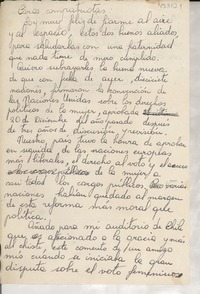 Caros compatriotas
Soy muy feliz de fiarme al aire
y al espacio, estos dos buenos aliados,
para saludarlos con una fraternidad
que nada tiene de mero cumplido.
Quiero subrayarles la buena nueva
de que con fecha de ayer, diecisiete
naciones, firmaron la convención de
las Naciones Unidas sobre los derechos
políticos de la mujer, aprobada
20 de Diciembre del año pasado después
de tres años de discusión y revisión.
Nuestro país tuvo la honra de aprobar
en seguida de las naciones europeas
más liberales, el derecho al voto y el
de la mujer a
casi todos los cargos públicos. varias
naciones habían quedado al margen
de esta reforma más moral que
política.
Añado para mi auditorio de Chile
que es aficionado a la gracia y más
al chiste, este comento de un amigo
mío cuando se iniciaba la gran
disputa sobre el voto femenino